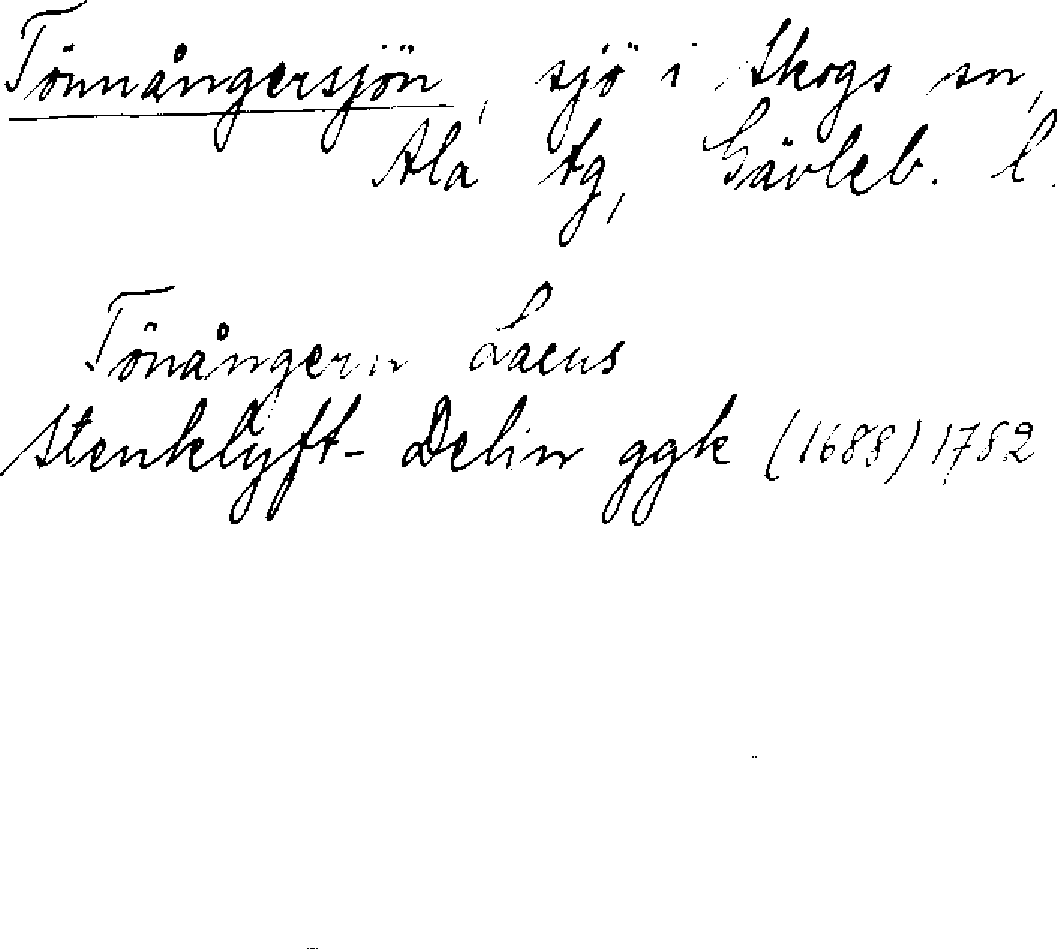 Tönnångersjön, sjö i Skogs sn,
Ala tg, Gävleb. l.
Tönångern Lacus
Stenklyft-Delin ggk (1688) 1752